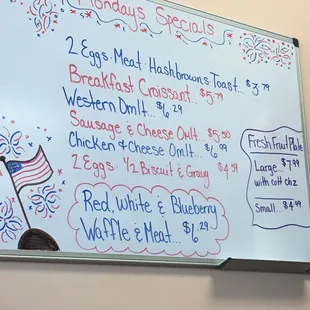 Mondays Specials
2 Eggs. Meat. Hashbrowns Toast... $3.79
Breakfast Croissant $5.79
Western Omlt... $6.29
Sausage & Cheese Omlt. $5.50
Chicken & Cheese Omlt... $6.99
2 Eggs. 1/2 Biscuit & Gravy $4.59
Red, White & Blueberry
Waffle & Meat... $6.29
Fresh Fruit Plate
Large $7.99
with cott chz
Small... $4.99